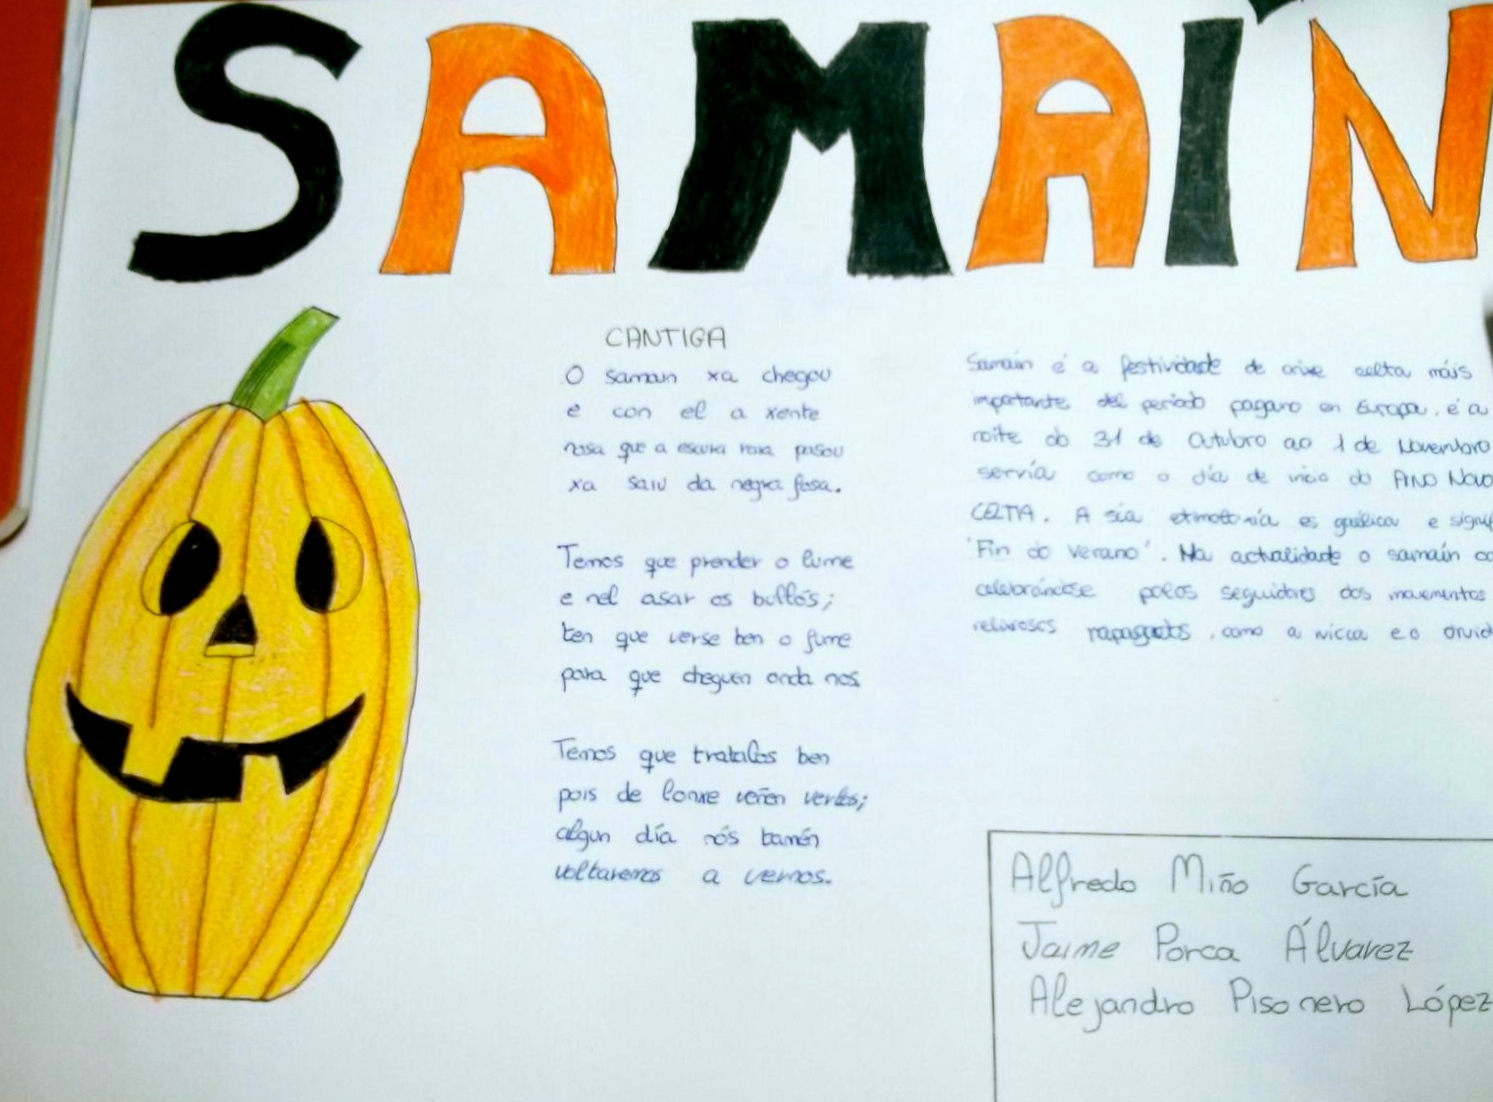 SAMAÍN
CANTIGA
O samain xa chegou
e con el a xente
nosa que a escura raia pasou
xa saiu da negra fosa.
Temos que prender o lume
e nel asar os bullós;
ten que verse ben o fume
para que cheguen onda nos.
Temos que tratalos ben
pois de lonxe veñen verlos;
algun día nós tamén
voltaremos a vernos.
Samain é a festividade de orixe celta máis
importante del periodo pagano en Europa, é a
noite do 31 de Outubro ao 1 de Novembro
servía como o día de inicio do ANO NOVO
CELTA. A súa es gaélica e signif
'Fin do verano'. Na actualidade o samaín co
celebrándose polos seguidores dos movementos
relixiosos, como a wicca e o druid
Alfredo Miño García
Jaime Porca Álvarez
Alejandro Pisonero López